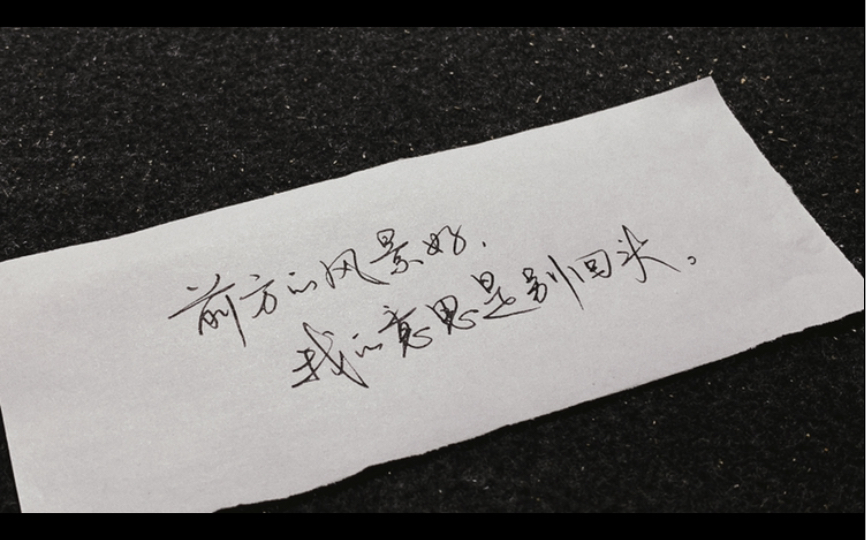 前方的风景好.
我的意思是别回头。